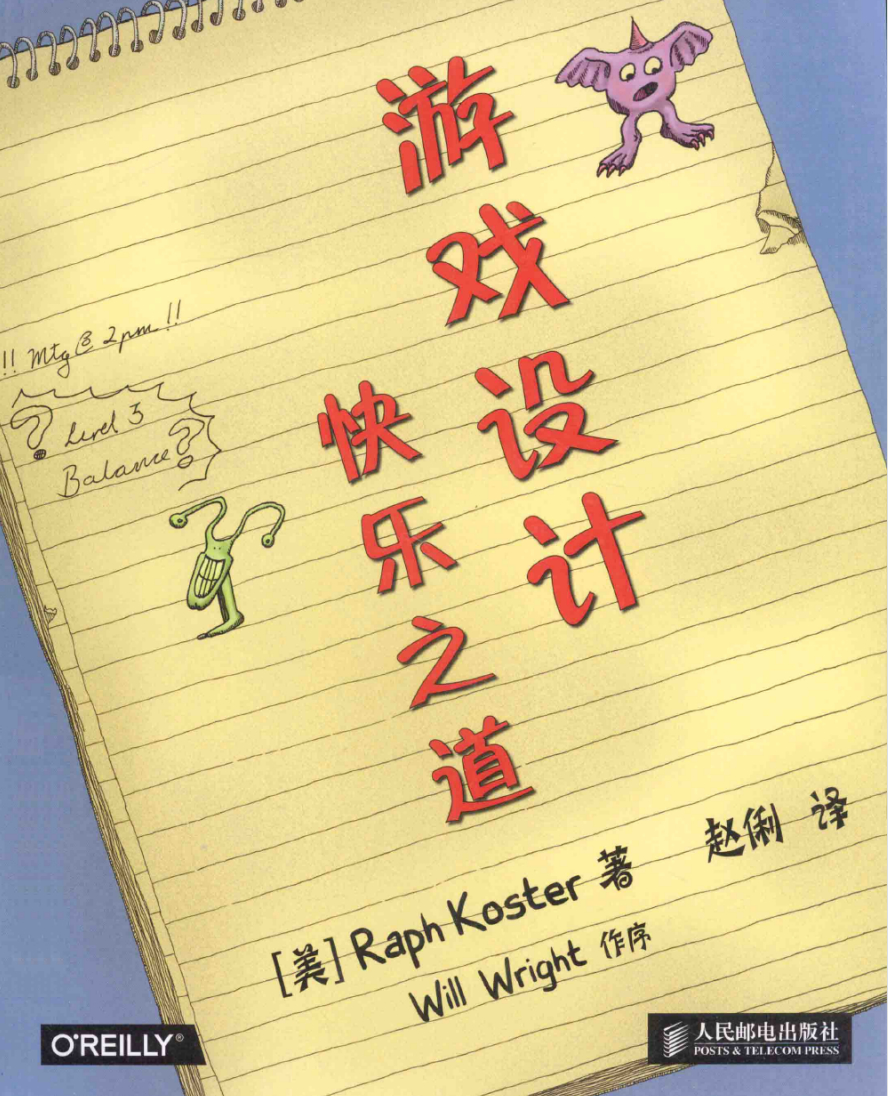 游戏设计
快乐之道
!! Mtg @ 2pm !!
? Level 3
Balance?
[美] Raph Koster 著 赵俐 译
Will Wright 作序
O'REILLY®
人民邮电出版社
POSTS & TELECOM PRESS